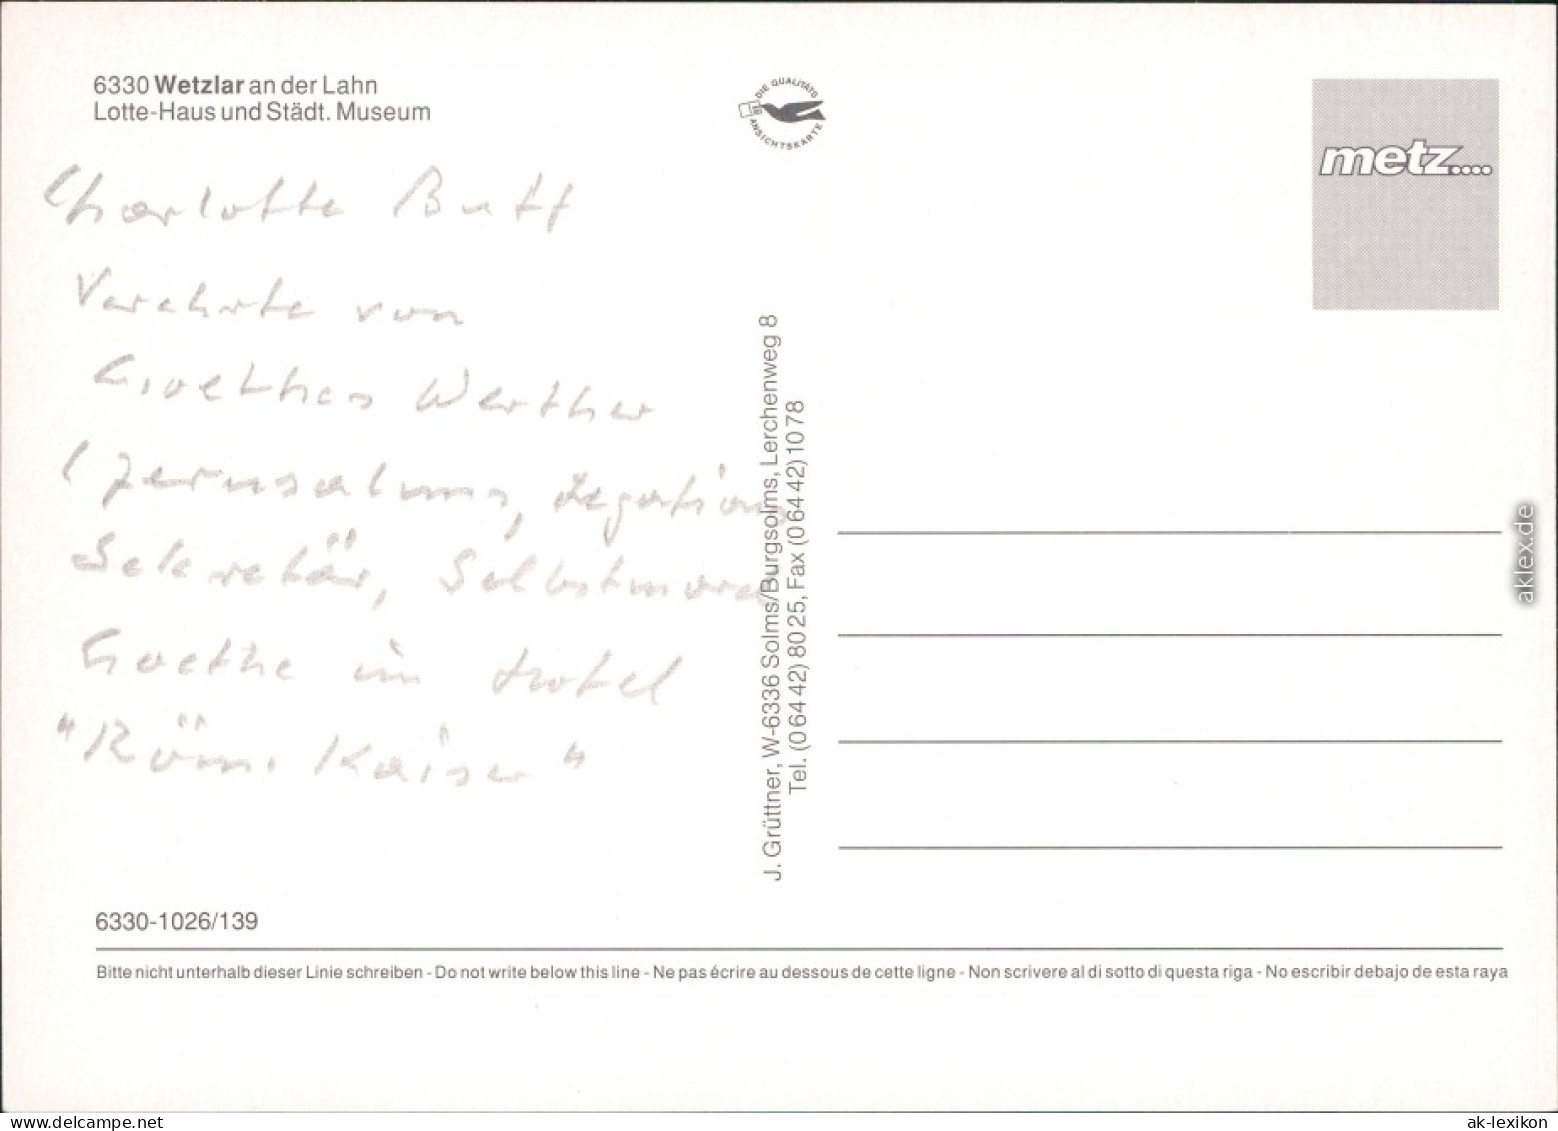 6330 Wetzlar an der Lahn
Lotte-Haus und Städt. Museum
DIE QUALITÄTS
ANSICHTSKARTE
metz....
Charlotte Buff
Verehrte von
Goethes Werther
(Jerusalem, Legations
Sekretär, Selbstmord
Goethe im Hotel
"Röm. Kaiser"
J. Grüttner, W-6336 Solms/Burgsolms, Lerchenweg 8
Tel. (0 64 42) 80 25, Fax (0 64 42) 10 78
6330-1026/139
Bitte nicht unterhalb dieser Linie schreiben - Do not write below this line - Ne pas écrire au dessous de cette ligne - Non scrivere al di sotto di questa riga - No escribir debajo de esta raya
aklex.de
ak-lexikon